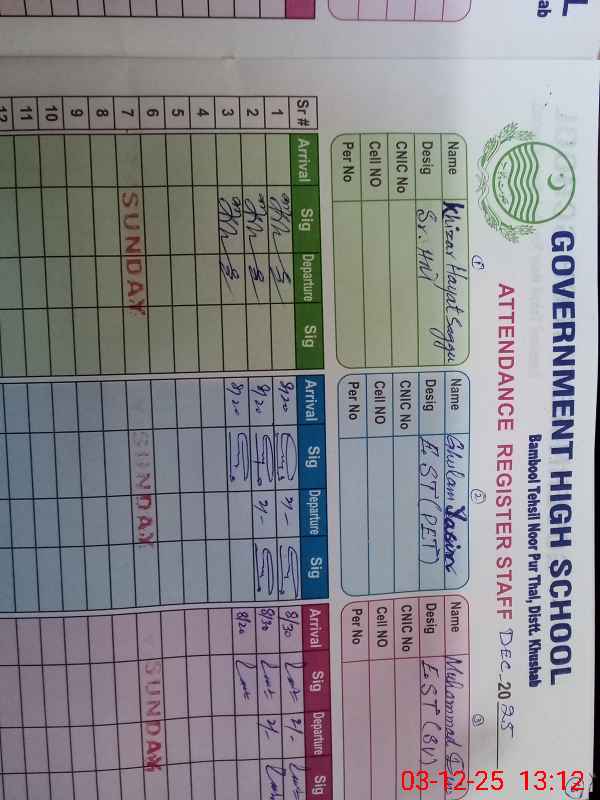 GOVERNMENT HIGH SCHOOL
Bambool Tehsil Noor Pur Thal, Distt. Khushab
ATTENDANCE REGISTER STAFF DEC-2025
1
Name Khizar Hayat Saggu
Desig Sr. HM
CNIC No
Cell NO
Per No
2
Name Ghulam Yasin
Desig EST (PET)
CNIC No
Cell NO
Per No
3
Name Muhammad
Desig EST (SV)
CNIC No
Cell NO
Per No
Sr # Arrival Sig Departure Sig Arrival Sig Departure Sig Arrival Sig Departure Sig
1 8/20 2/- 8/30 2/-
2 8/20 2/- 8/30 2/-
3 8/20 8/20
4
5
6
7 SUNDAY SUNDAY SUNDAY
8
9
10
11
12
03-12-25 13:12